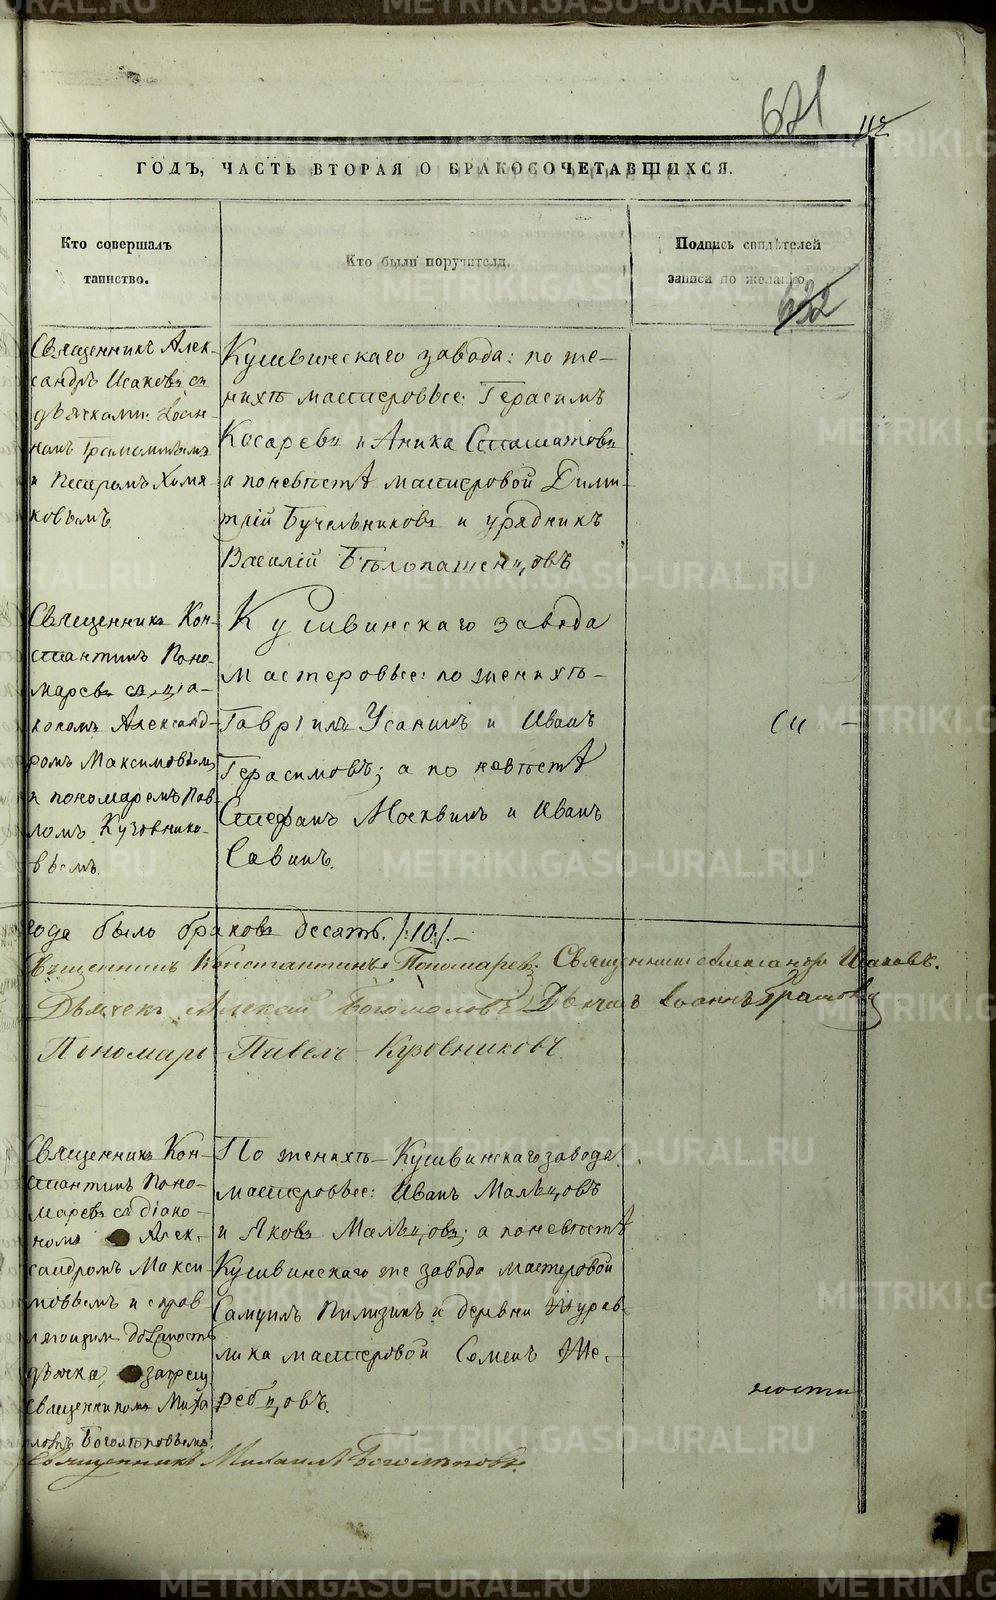 621
112
ГОДЪ, ЧАСТЬ ВТОРАЯ О БРАКОСОЧЕТАВШИХСЯ.
Кто совершалъ
таинство.
Кто были поручители.
Подпись свидѣтелей
записи по желанію.
622
Священникъ Алек-
сандръ Исаковъ съ
дьячками: Іоан-
номъ
и Петромъ Хомя
ковымъ.
Кушвинскаго завода: по же-
нихѣ мастеровые: Герасимъ
Косаревъ и Аника Стаматовъ
а по невѣстѣ мастеровой Дими-
трій Бучельниковъ и урядникъ
Василій Бѣлопашенцовъ
Священникъ Кон-
стантинъ Поно-
маревъ съ діа-
кономъ Александ-
ромъ Максимовымъ
и пономаремъ Пав-
ломъ Кузовнико-
вымъ.
Кушвинскаго завода
мастеровые: по женихѣ-
Гавріилъ Усанинъ и Иванъ
Герасимовъ; а по невѣстѣ
Стефанъ Москвинъ и Иванъ
Савинъ.
года было браковъ десять. /:10:/.-
Священникъ Константинъ Пономаревъ. Священникъ Александръ Исаковъ.
Дьячекъ Алексѣй Богомоловъ, Дьячекъ Іоаннъ
Пономарь Павелъ Кузовниковъ
Священникъ Кон-
стантинъ Поно-
маревъ съ діако-
номъ Алек-
сандромъ Макси
мовымъ и справ
ляющим должность
дьячка, запрещ.
священникомъ Миха
иломъ Боголѣповымъ.
По женихѣ - Кушвинскаго завода
мастеровые: Иванъ Мальцовъ
и Яковъ Мальцовъ; а по невѣстѣ
Кушвинскаго же завода мастеровой
Самуилъ Пилизинъ и деревни Журав-
лика мастеровой Семенъ Же-
ребцовъ.
Священникъ Михаилъ Боголѣповъ.